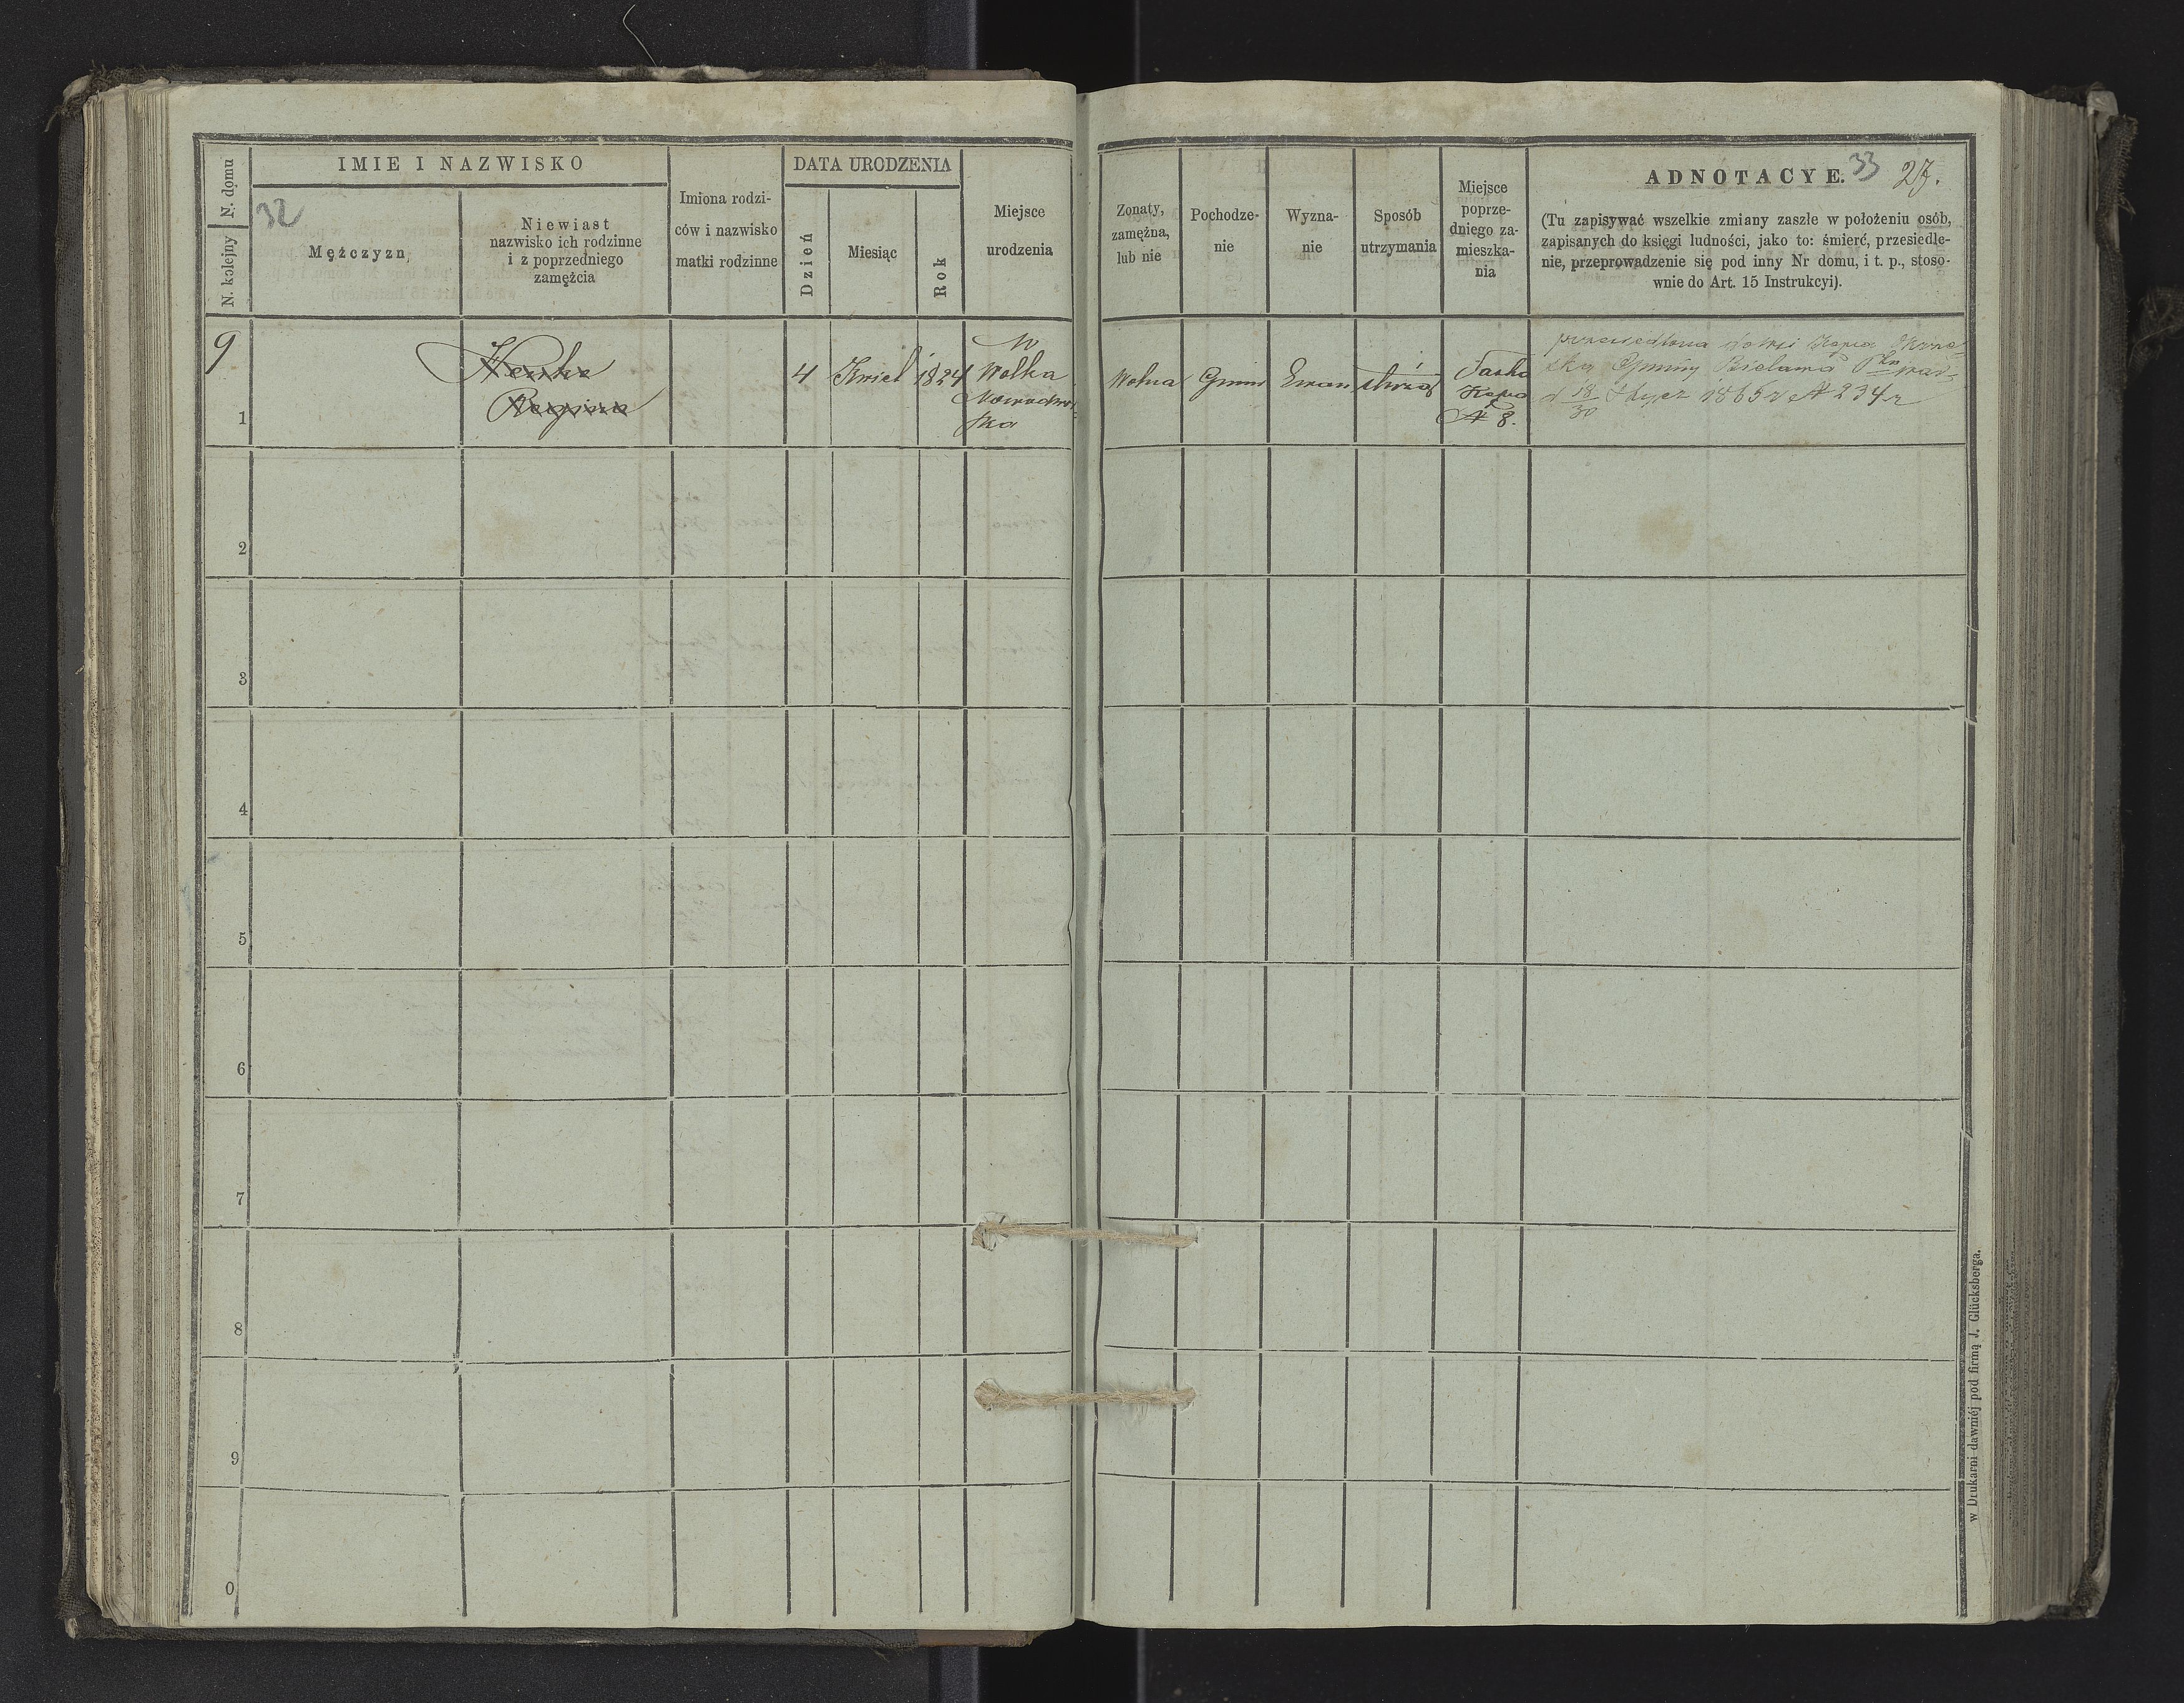 N. kolejny N. domu
IMIE I NAZWISKO
32
Mężczyzn,
Niewiast
nazwisko ich rodzinne
i z poprzedniego
zamężcia
Imiona rodzi-
ców i nazwisko
matki rodzinne
DATA URODZENIA
Dzień
Miesiąc
Rok
Miejsce
urodzenia
Zonaty,
zamężna,
lub nie
Pochodze-
nie
Wyzna-
nie
Sposób
utrzymania
Miejsce
poprze-
dniego za-
mieszka-
nia
ADNOTACYE.
33 27.
(Tu zapisywać wszelkie zmiany zaszłe w położeniu osób,
zapisanych do księgi ludności, jako to: śmierć, przesiedle-
nie, przeprowadzenie się pod inny Nr domu, i t. p., stoso-
wnie do Art. 15 Instrukcyi).
9
1
Henke
Regina
4
Kwieť
1824
W
Wolka
ska
Wolna
Gmin
Ewan
służąc
Saska
Kępa
N 8.
przesiedlona do wsi Kępa
Gminy Bielawa
d 18/30 Stycz 1865 r N 234 r
2
3
4
5
6
7
8
9
0
w Drukarni dawniéj pod firmą J. Glücksberga.